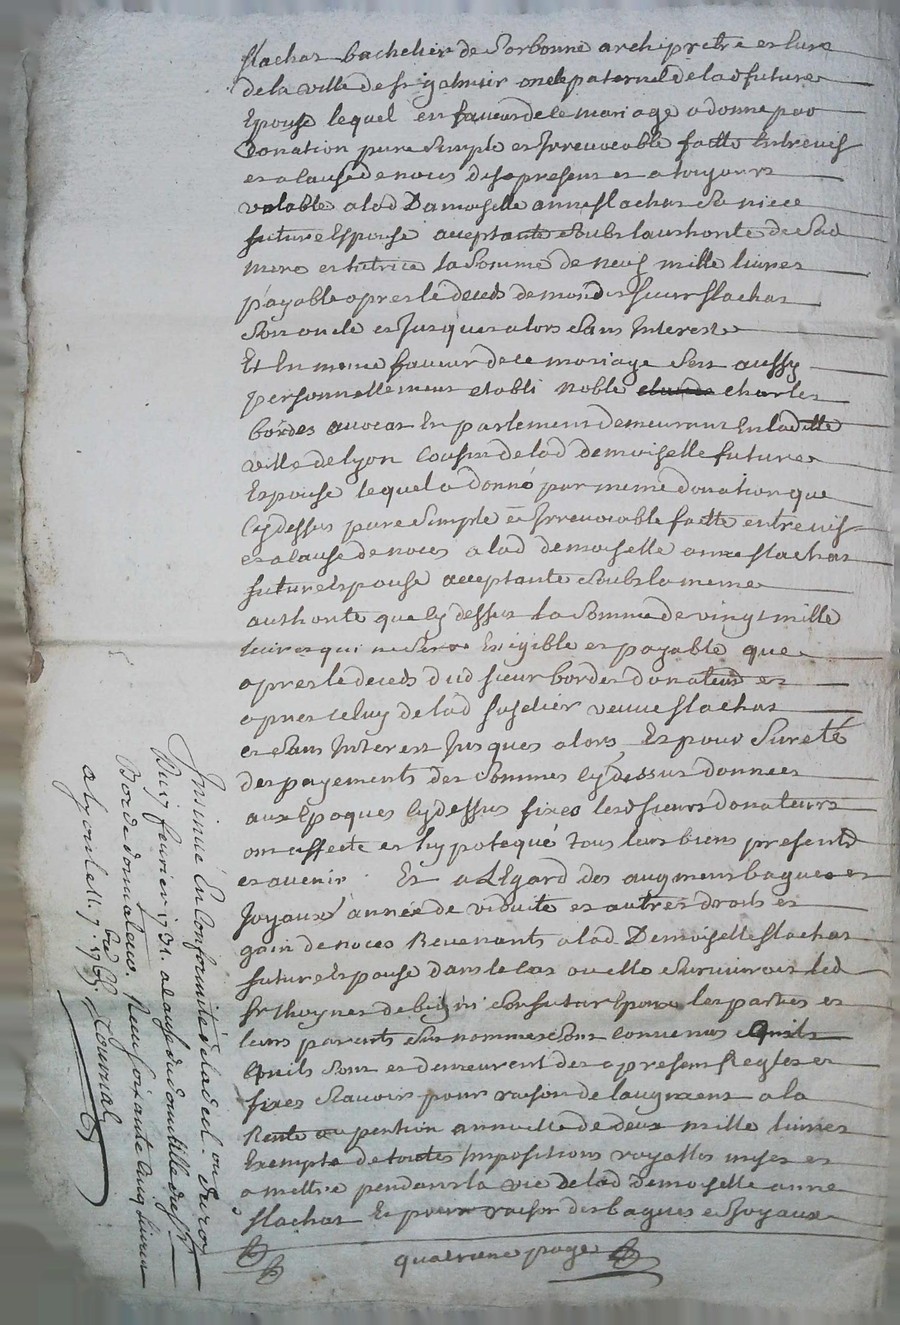 flachat bachelier de sorbonne archipretre et curé
de la ville de st galmier oncle paternel de lad future
Epouse lequel en faveur de ce mariage a donné par
donation pure simple et Irrevocable faitte Entrevifs
et a cause de noces des a present et a toujours
valable a lad Damoiselle anne flachat sa niece
future Espouse acceptante soubs lauthorité de sad
mere et tutrice la somme de neuf mille livres
payable apres le deceds de mond sieur flachat
son oncle et Jusques alors sans Interest
Et En meme faveur de ce mariage sest aussy
personnellement etabli noble charles
bordes avocat En parlement demeurant En lad
ville de lyon cousin de lad demoiselle future
Espouse lequel a donné par meme donation que
Cy dessus pure simple et Irrevocable faitte entrevifs
et a cause de noces a lad demoiselle anne flachat
future Espouse acceptante soubs la meme
authorité que cy dessus la somme de vingt mille
livres qui ne sera Exigible et payable que
apres le deceds dud sieur bordes donateur et
apres celuy de lad veuve flachat
et sans Interest Jusques alors Et pour sureté
des payements des sommes cy dessus données
aux Epoques cy dessus fixes lesd sieurs donateurs
ont affecté et hypotequé tous leurs biens presents
et avenir Et a LEgard des augment bagues et
Joyaux année de viduité et autres droits et
gain de noces Revenants a lad Demoiselle flachat
future Espouse dans le cas ou elle survivroit led
sr thoynet de bigni son futur Epoux les parties et
leurs parents sus nommes sont convenus Quils
Quils sont et demeurent des a present Regles et
fixes scavoir pour raison de laugment a la
Rente ou pention annuelle de deux mille livres
Exempte de toutes Impositions royalles mises et
a mettre pendant la vie de lad Demoiselle anne
flachat Et pour raison des bagues et Joyaux
quatrieme page
Insinué En Conformité de la decl. du roy
Du 17 fevrier 1731. a la suite du
neuf soixante cinq livres
a lyon le 11. 7. 1767. Tournal